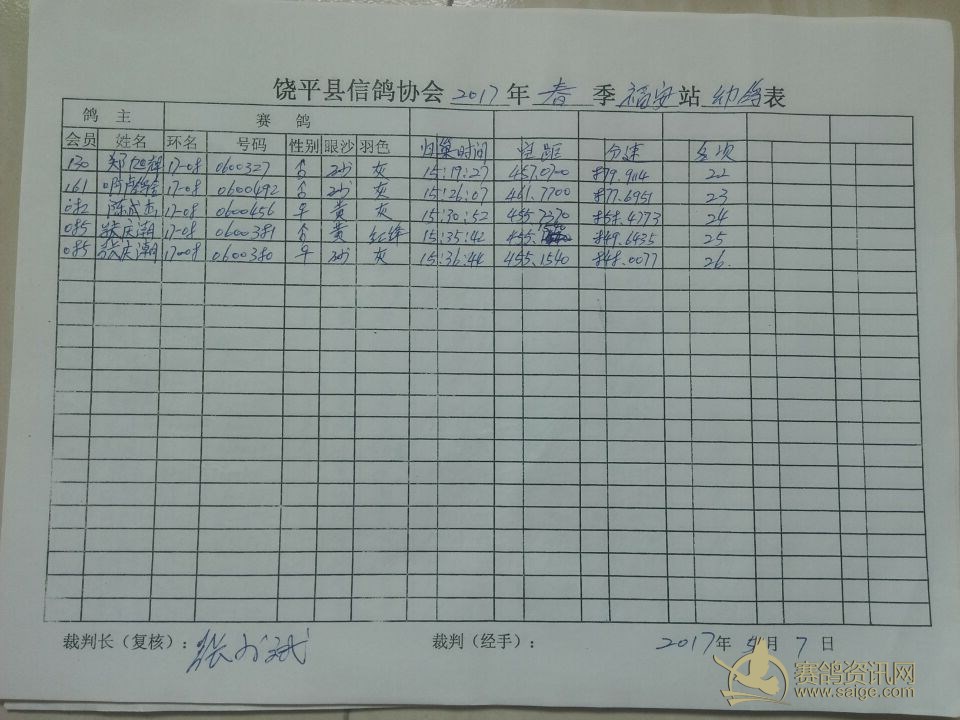 饶平县信鸽协会 2017 年 春 季 福安 站 幼鸽 表
鸽 主 赛 鸽
会员 姓名 环名 号码 性别 眼沙 羽色 归巢时间 空距 分速 名次
130 郑旭辉 17-08 0600327 灰 15:19:27 457.0700 879.9114 22
161 17-08 0600492 灰 15:26:07 461.7700 877.6951 23
082 陈成杰 17-08 0600456 黄 灰 15:30:52 455.2270 858.4773 24
085 张庆潮 17-08 0600381 黄 红绛 15:35:42 455. 849.6435 25
085 张庆潮 17-08 0600380 灰 15:36:44 455.1540 848.0077 26
裁判长（复核）： 裁判（经手）： 2017 年 月 7 日
赛鸽资讯网
www.saigc.com